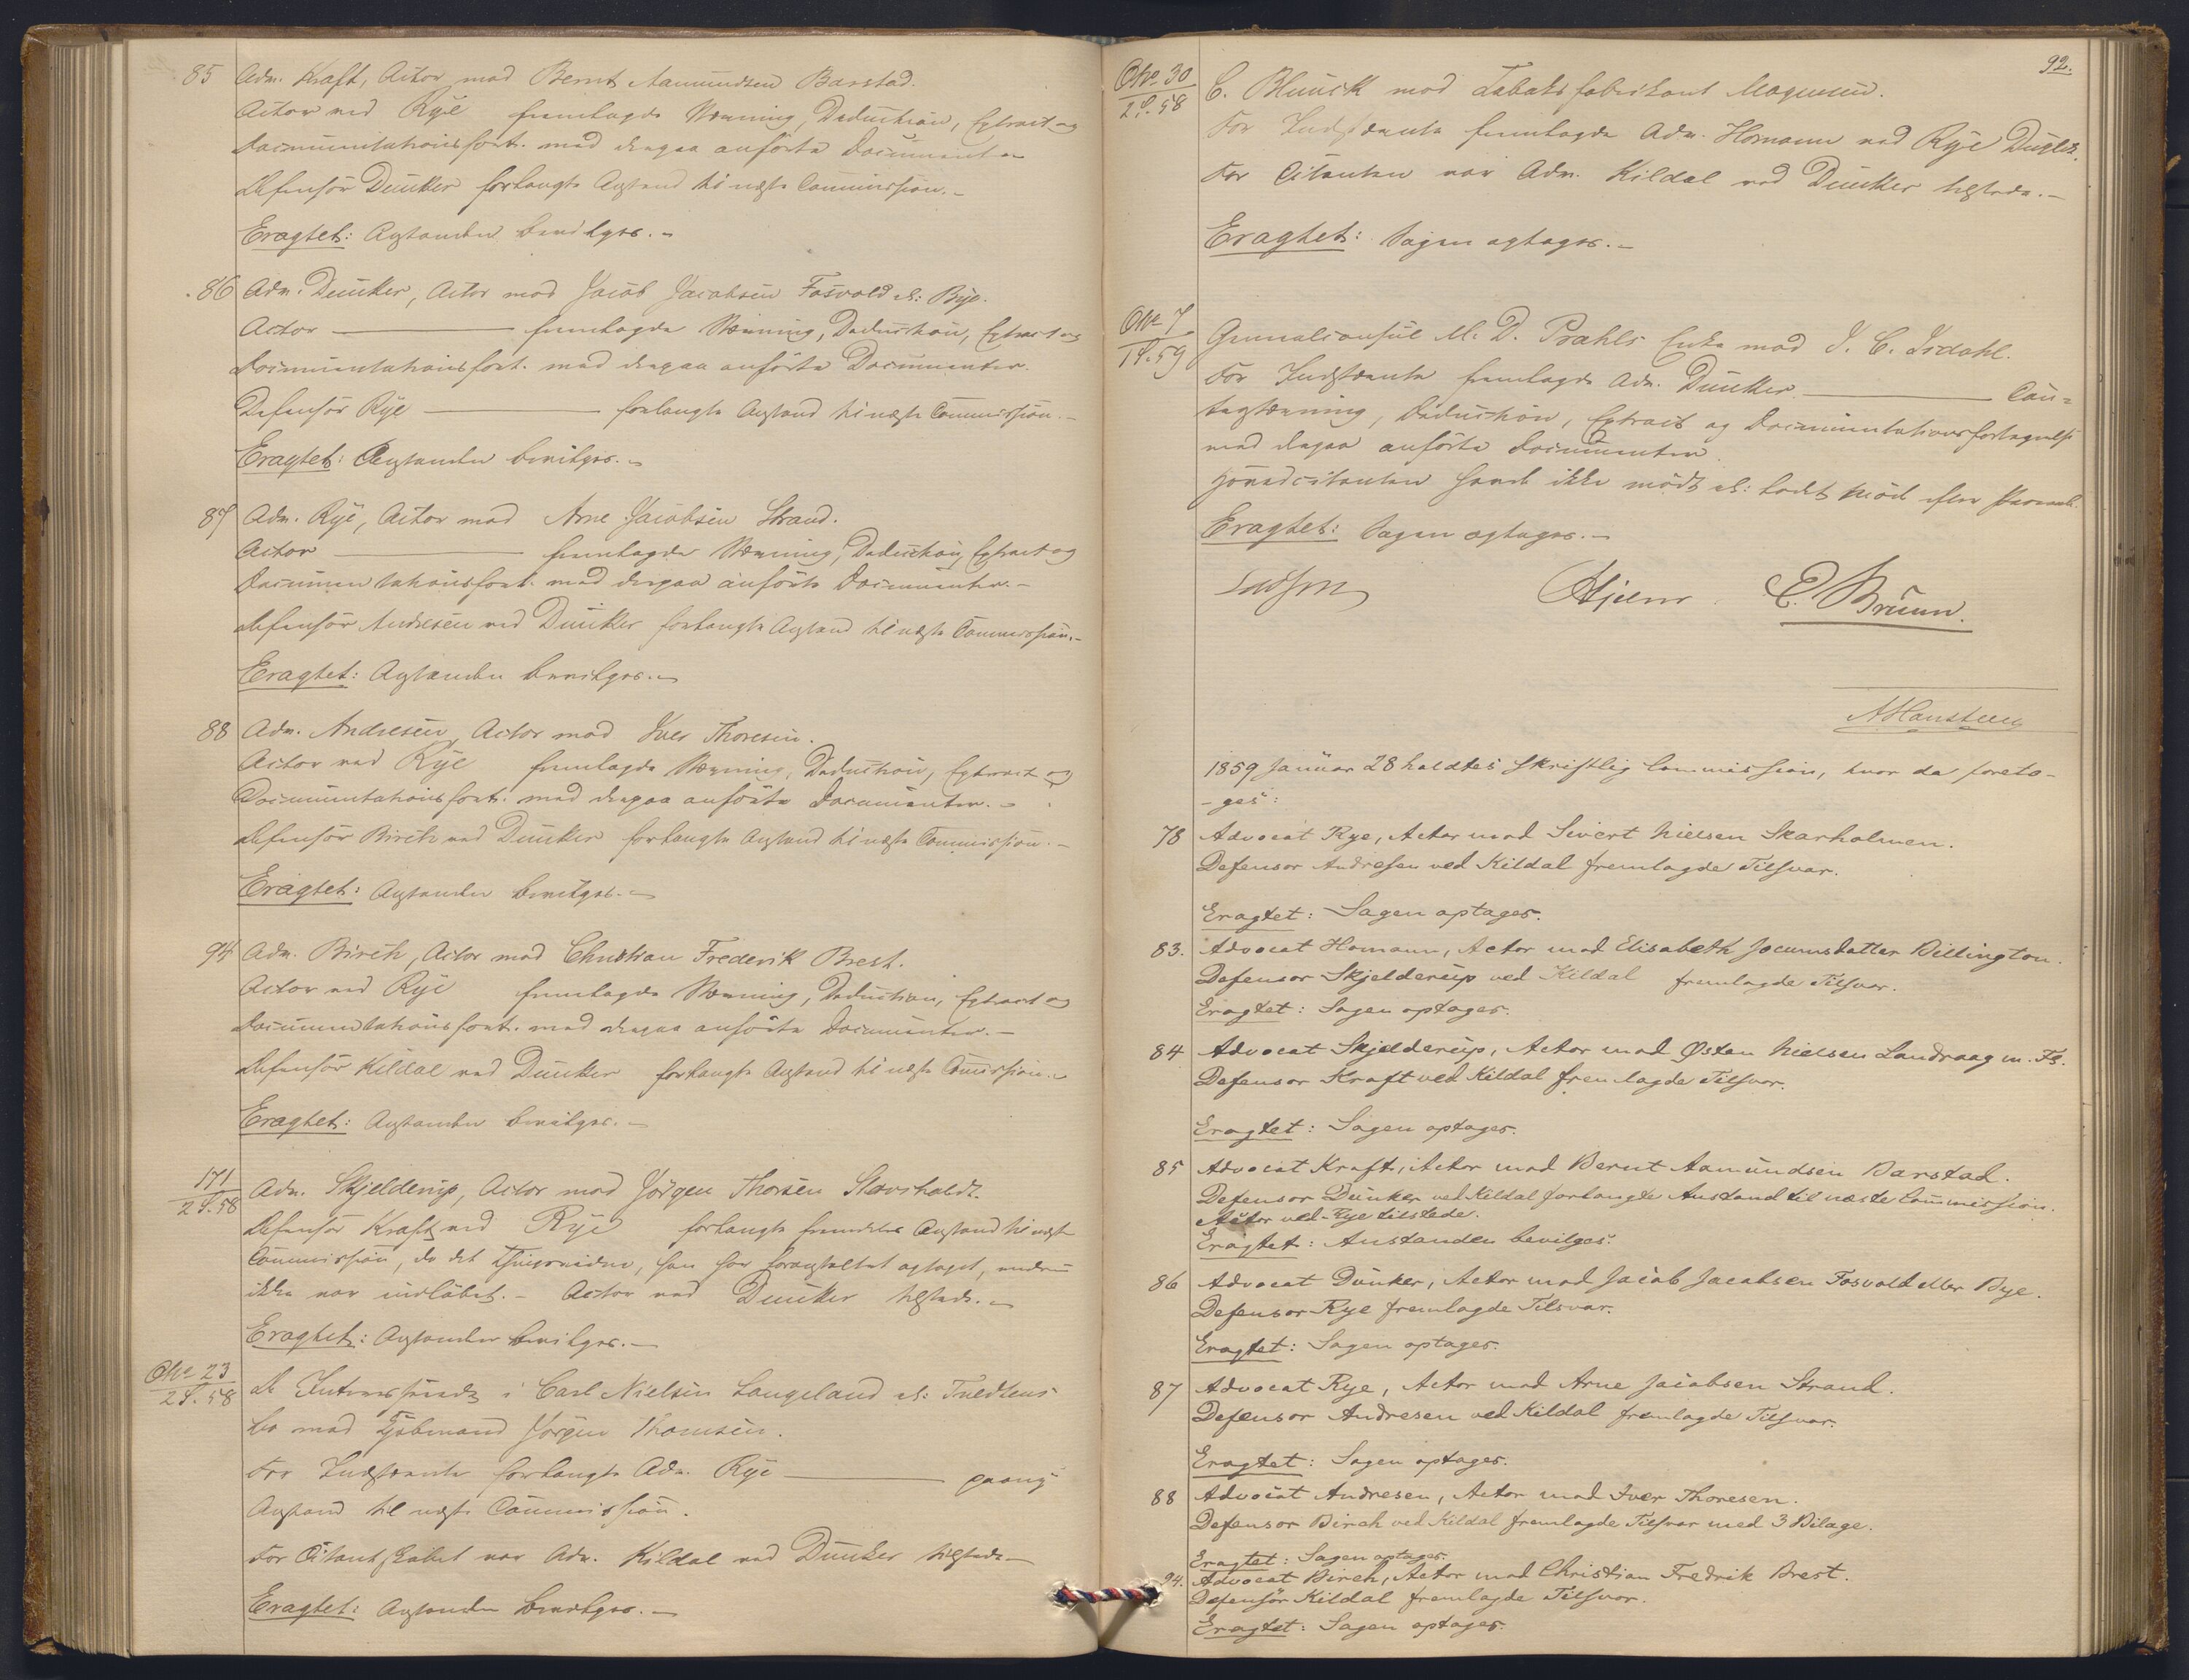 85 Adv. Kraft, Actor mod Bernt Aamundsen Barstad.
Actor ved Rye fremlagde Stævning, Deduction, Extract og
Documentationsfort. med derpaa anførte Documenter
Defensor Dunker forlangte Anstand til næste Commission.-
Eragtet: Anstanden bevilges.-
86 Adv. Dunker, Actor mod Jacob Jacobsen Fosvold el: Bye.
Actor fremlagde Stævning, Deduction, Extract og
Documentationsfort. med derpaa anførte Documenter.
Defensor Rye forlangte Anstand til næste Commission.-
Eragtet: Anstanden bevilges.-
87 Adv. Rye, Actor mod Arne Jacobsen Strand.
Actor fremlagde Stævning, Deduction, Extract og
Documentationsfort. med derpaa anførte Documenter.-
Defensor Andresen ved Dunker forlangte Anstand til næste Commission.-
Eragtet: Anstanden bevilges.-
88 Adv. Andresen, Actor mod Iver Thoresen.
Actor ved Rye fremlagde Stævning, Deduction, Extract og
Documentationsfort. med derpaa anførte Documenter.-
Defensor Birch ved Dunker forlangte Anstand til næste Commission.-
Eragtet: Anstanden bevilges.-
94 Adv. Birch, Actor mod Christian Frederik Brest.
Actor ved Rye fremlagde Stævning, Deduction, Extract og
Documentationsfort. med derpaa anførte Documenter.-
Defensor Kildal ved Dunker forlangte Anstand til næste Commission.-
Eragtet: Anstanden bevilges.-
171
2 S. 58 Adv. Skjelderup, Actor mod Jørgen Thorsen
Defensor Kraft ved Rye forlangte fremdeles Anstand til næste
Commission, da det Thingsvidne, han har foranstaltet optaget, endnu
ikke var indløbet.- Actor ved Dunker tilstede.-
Eragtet: Anstanden bevilges.-
No 23
2 S. 58 De Interesserede i Carl Nielsen Langeland el: Tvedtens
Bo mod Kjøbmand Jørgen Thomsen.
For Indstævnte forlangte Adv. Rye paany
Anstand til næste Commission.
For Citantskabet var Adv. Kildal ved Dunker tilstede.-
Eragtet: Anstanden bevilges.-
92.
No 30
2 S. 58 C. Blunck mod Tobaksfabrikant Magnus.
For Indstævnte fremlagde Adv. Homann ved Rye Duplik.
For Citanten var Adv. Kildal ved Dunker tilstede.-
Eragtet: Sagen optages.-
No 7
1 S. 59 Generalconsul M. D. Prahls Enke mod J. C. Isdahl.
For Indstævnte fremlagde Adv. Dunker Con=
trastævning, Deduction, Extract og Documentationsfortegnelse
med derpaa anførte Documenter.
Hovedcitanten havde ikke mødt el: ladet møde efter Paaraab.
Eragtet: Sagen optages.-
Lasson Hjelm. C. Bruun.
A Hansteen
1859 Januar 28 holdtes skriftlig Commission, hvor da foreto-
-ges:
78 Advocat Rye, Actor mod Sivert Nielsen Skarholmen.
Defensor Andresen ved Kildal fremlagde Tilsvar.
Eragtet: Sagen optages.
83. Advocat Homann, Actor mod Elisabeth Jocumsdatter Billington.
Defensor Skjelderup ved Kildal fremlagde Tilsvar.
Eragtet: Sagen optages.
84 Advocat Skjelderup, Actor mod Østen Nielsen Landraag m. Fl.
Defensor Kraft ved Kildal fremlagde Tilsvar.
Eragtet: Sagen optages.
85 Advocat Kraft, Actor mod Bernt Aamundsen Barstad.
Defensor Dunker ved Kildal forlangte Anstand til næste Commission.
Actor ved Rye tilstede.
Eragtet: Anstanden bevilges.
86 Advocat Dunker, Actor mod Jacob Jacobsen Fosvold eller Bye.
Defensor Rye fremlagde Tilsvar.
Eragtet: Sagen optages.
87 Advocat Rye, Actor mod Arne Jacobsen Strand.
Defensor Andresen ved Kildal fremlagde Tilsvar.
Eragtet: Sagen optages.
88 Advocat Andresen, Actor mod Iver Thoresen.
Defensor Birch ved Kildal fremlagde Tilsvar med 3 Bilage.
Eragtet: Sagen optages.
94. Advocat Birch, Actor mod Christian Fredrik Brest.
Defensor Kildal fremlagde Tilsvar.
Eragtet: Sagen optages.